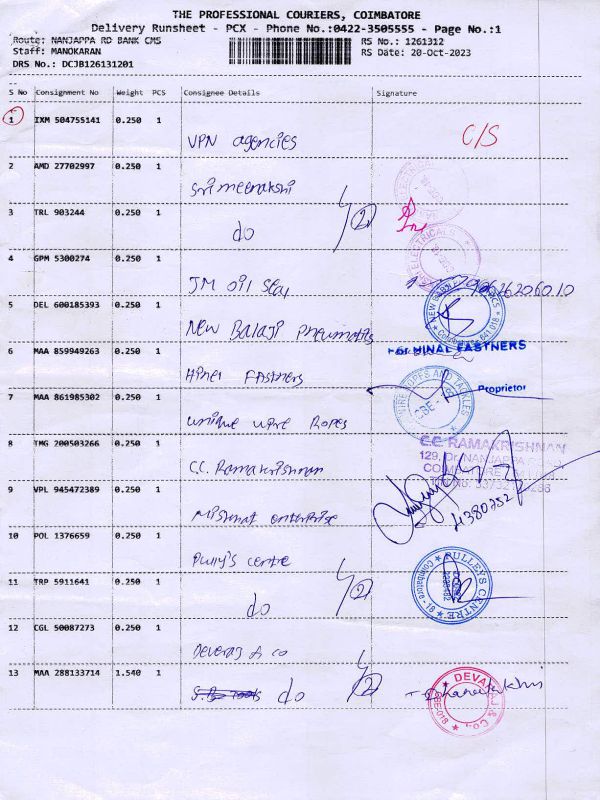 THE PROFESSIONAL COURIERS, COIMBATORE
Delivery Runsheet - PCX - Phone No.:0422-3505555 - Page No.:1
Route: NANJAPPA RD BANK CMS
RS No.: 1261312
Staff: MANOKARAN
RS Date: 20-Oct-2023
DRS No.: DCJB126131201
S No Consignment No Weight PCS Consignee Details Signature
1 IXM 504755141 0.250 1
VPN agencies
C/S
2 AMD 27702997 0.250 1
Sri meenakshi
3 TRL 903244 0.250 1
do
ELECTRICALS
4 GPM 5300274 0.250 1
JM oil seal
5 DEL 600185393 0.250 1
New Balaji pneumatics
6 MAA 859949263 0.250 1
For MINAL FASTNERS
Hinel Fastners
7 MAA 861985302 0.250 1
Proprietor
unique wire Ropes
8 TMG 200503266 0.250 1
C.C. RAMAKRISHNAN
C.C. Ramakrishnan
9 VPL 945472389 0.250 1
enterprise
10 POL 1376659 0.250 1
Pully's centre
PULLEYS CENTRE
11 TRP 5911641 0.250 1
do
12 CGL 50087273 0.250 1
Deveraj & co
13 MAA 288133714 1.540 1
do
DEVARAJ & Co.,
CBE-018